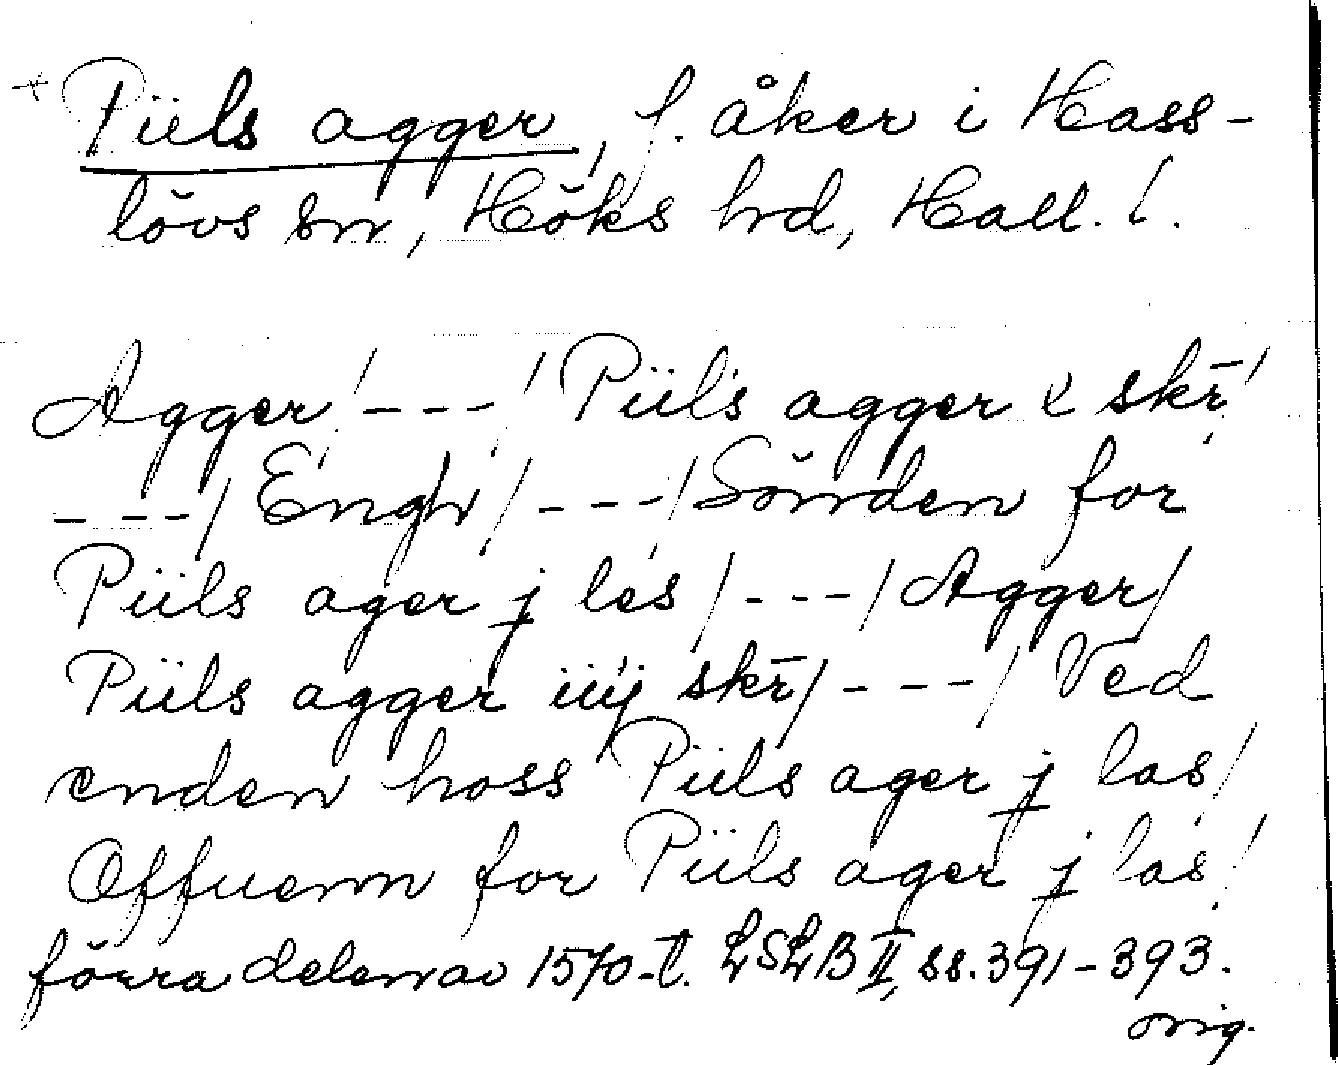 + Piils agger, f. åker i Hass-
lövs sn, Höks hd, Hall. l.
Agger/---/Piils agger x skr̄/
---/Engh/---/Sönden for
Piils ager j les/---/Agger/
Piils agger iiij skr̄/---/Ved
enden hoss Piils ager j las/
Offuenn for Piils ager j las/
förra delen av 1570-t. LSLB II, ss. 391-393.
orig.